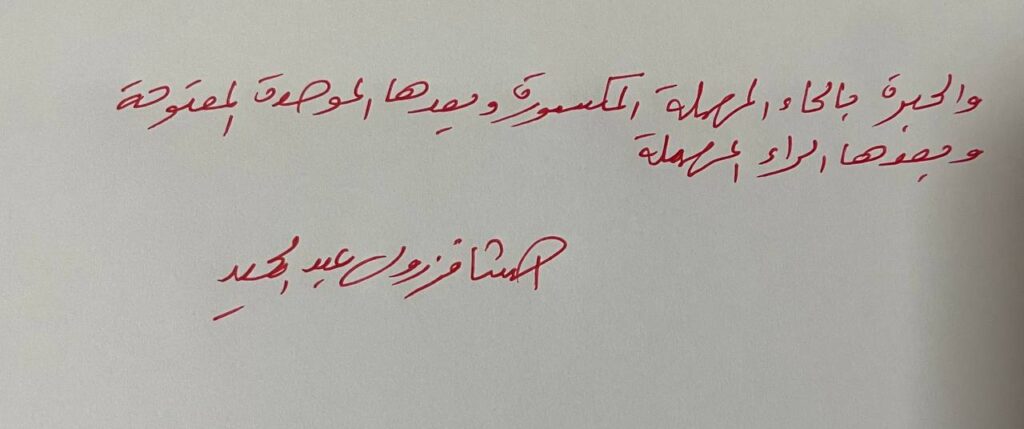 والحبرة بالحاء المهملة المكسورة وبعدها الموحدة المفتوحة
وبعدها الراء المهملة
عبد المجيد